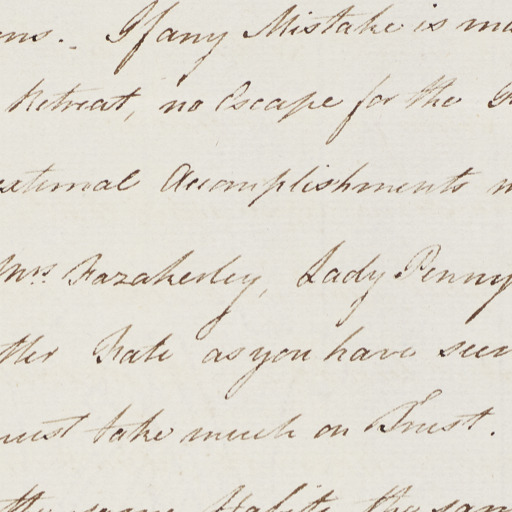 ons. _ If any Mistake is ma
Retreat, no Escape for the
external Accomplishments
Mrs. Fazakerley, Lady Penny
ther Fate as you have seen
must take much on Trust.
the same Habits, the sam